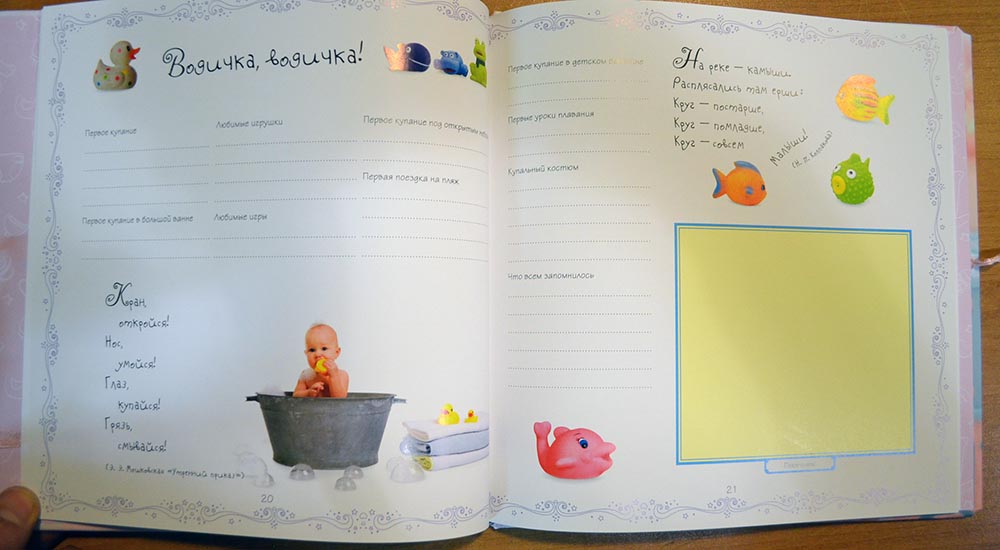 Водичка, водичка!
Первое купание
Любимые игрушки
Первое купание под открытым небом
Первая поездка на пляж
Первое купание в большой ванне
Любимые игры
Кран,
откройся!
Нос,
умойся!
Глаз,
купайся!
Грязь,
смывайся!
(Э. Э. Мошковская «Утренний приказ»)
20
Первое купание в детском бассейне
Первые уроки плавания
Купальный костюм
Что всем запомнилось
На реке — камыши.
Расплясались там ерши:
Круг — постарше,
Круг — помладше,
Круг — совсем
малыши!
21